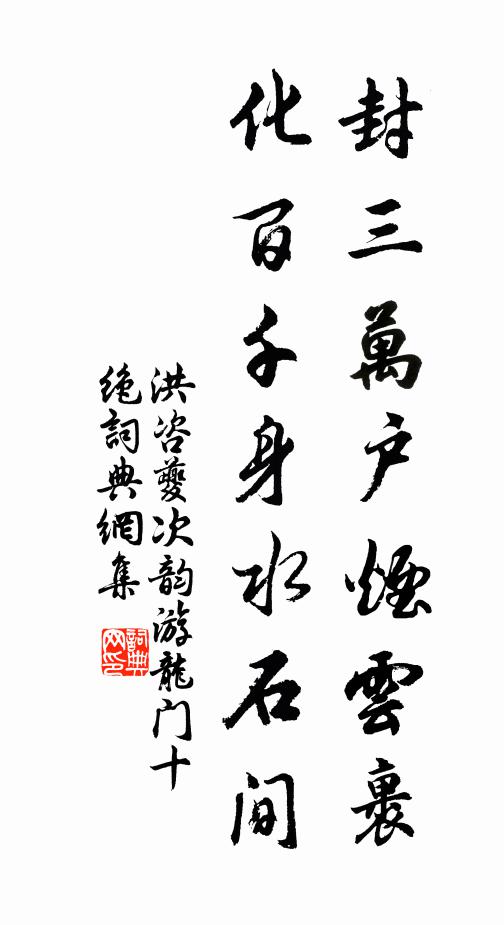 封三萬戶煙雲裹
化百千身水石间
洪咨夔次韵游龍门十
绝詞典網集
詞典網印